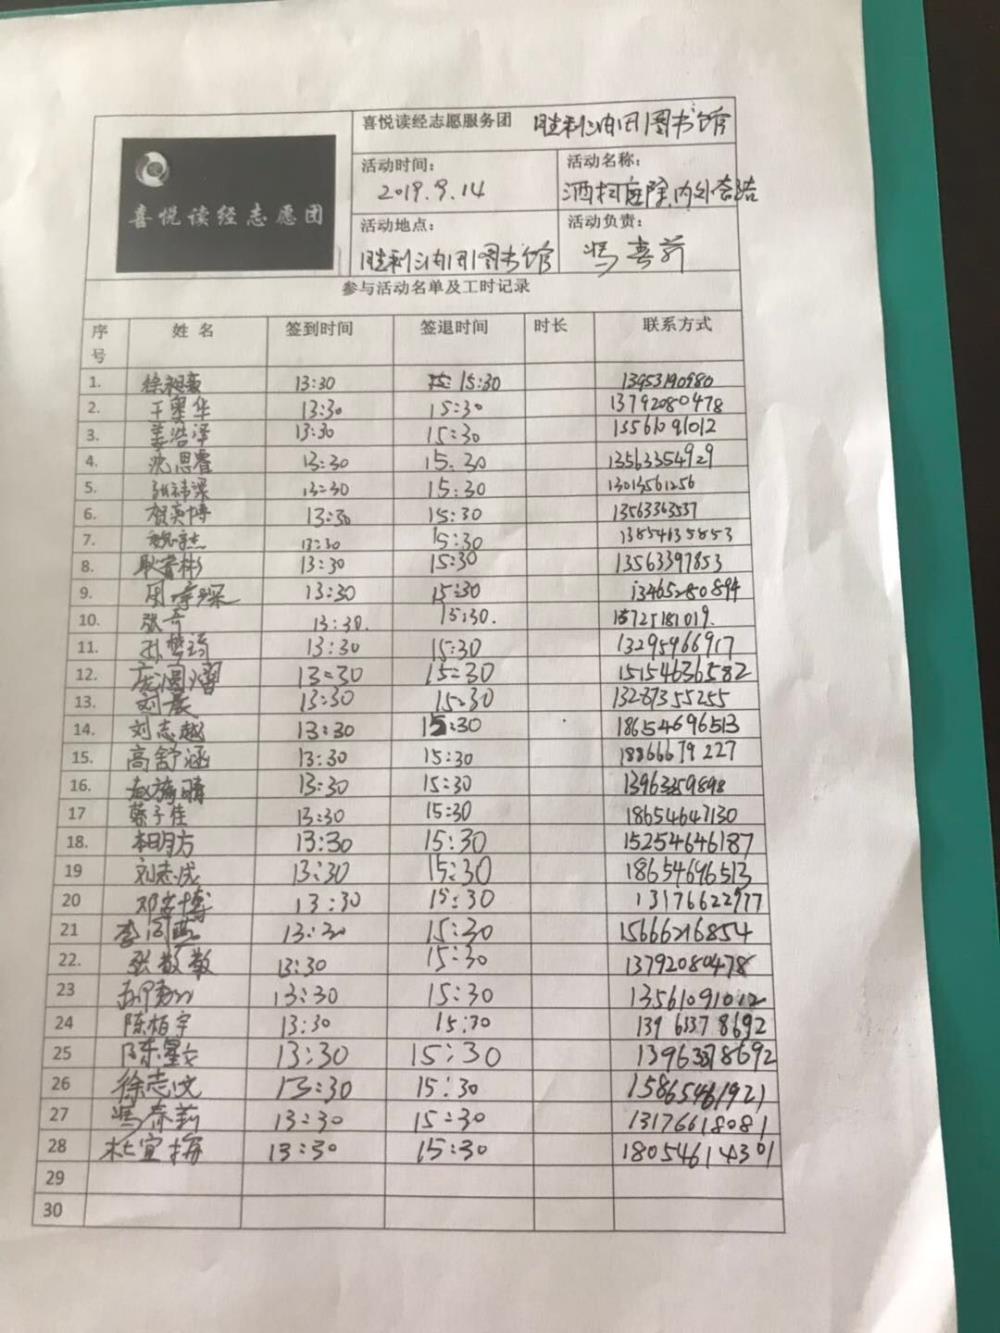 喜悦读经志愿团
喜悦读经志愿服务团 胜利油田图书馆
活动时间: 活动名称:
2019.9.14 洒扫庭除,内外整洁
活动地点: 活动负责:
胜利油田图书馆 冯春莉
参与活动名单及工时记录
序号 姓名 签到时间 签退时间 时长 联系方式
1. 13:30 15:30 13953190980
2. 13:30 15:30 13792080478
3. 姜浩泽 13:30 15:30 13561091012
4. 沈思睿 13:30 15:30 13563354929
5. 13:30 15:30 13013561256
6. 贺英博 13:30 15:30 13563363537
7. 13:30 15:30 13854635853
8. 13:30 15:30 13563397853
9. 13:30 15:30 13465280894
10. 张奇 13:30. 15:30. 15725181019.
11. 孙梦琦 13:30 15:30 13295966917
12. 13:30 15:30 15154636582
13. 刘晨 13:30 15:30 13287355255
14. 刘志越 13:30 15:30 18654696513
15. 高舒涵 13:30 15:30 18866679227
16. 13:30 15:30 13963359898
17 蔡子佳 13:30 15:30 18654647130
18. 13:30 15:30 15254646187
19 刘志成 13:30 15:30 18654696513
20 邓安博 13:30 15:30 13176622977
21 13:30 15:30 15666216854
22. 张敬敬 13:30 15:30 13792080478
23 13:30 15:30 13561091012
24 陈柏宇 13:30 15:30 13963378692
25 13:30 15:30 13963378692
26 徐志文 13:30 15:30 15865461921
27 冯春莉 13:30 15:30 13176618081
28 杜宜梅 13:30 15:30 18054614301
29
30